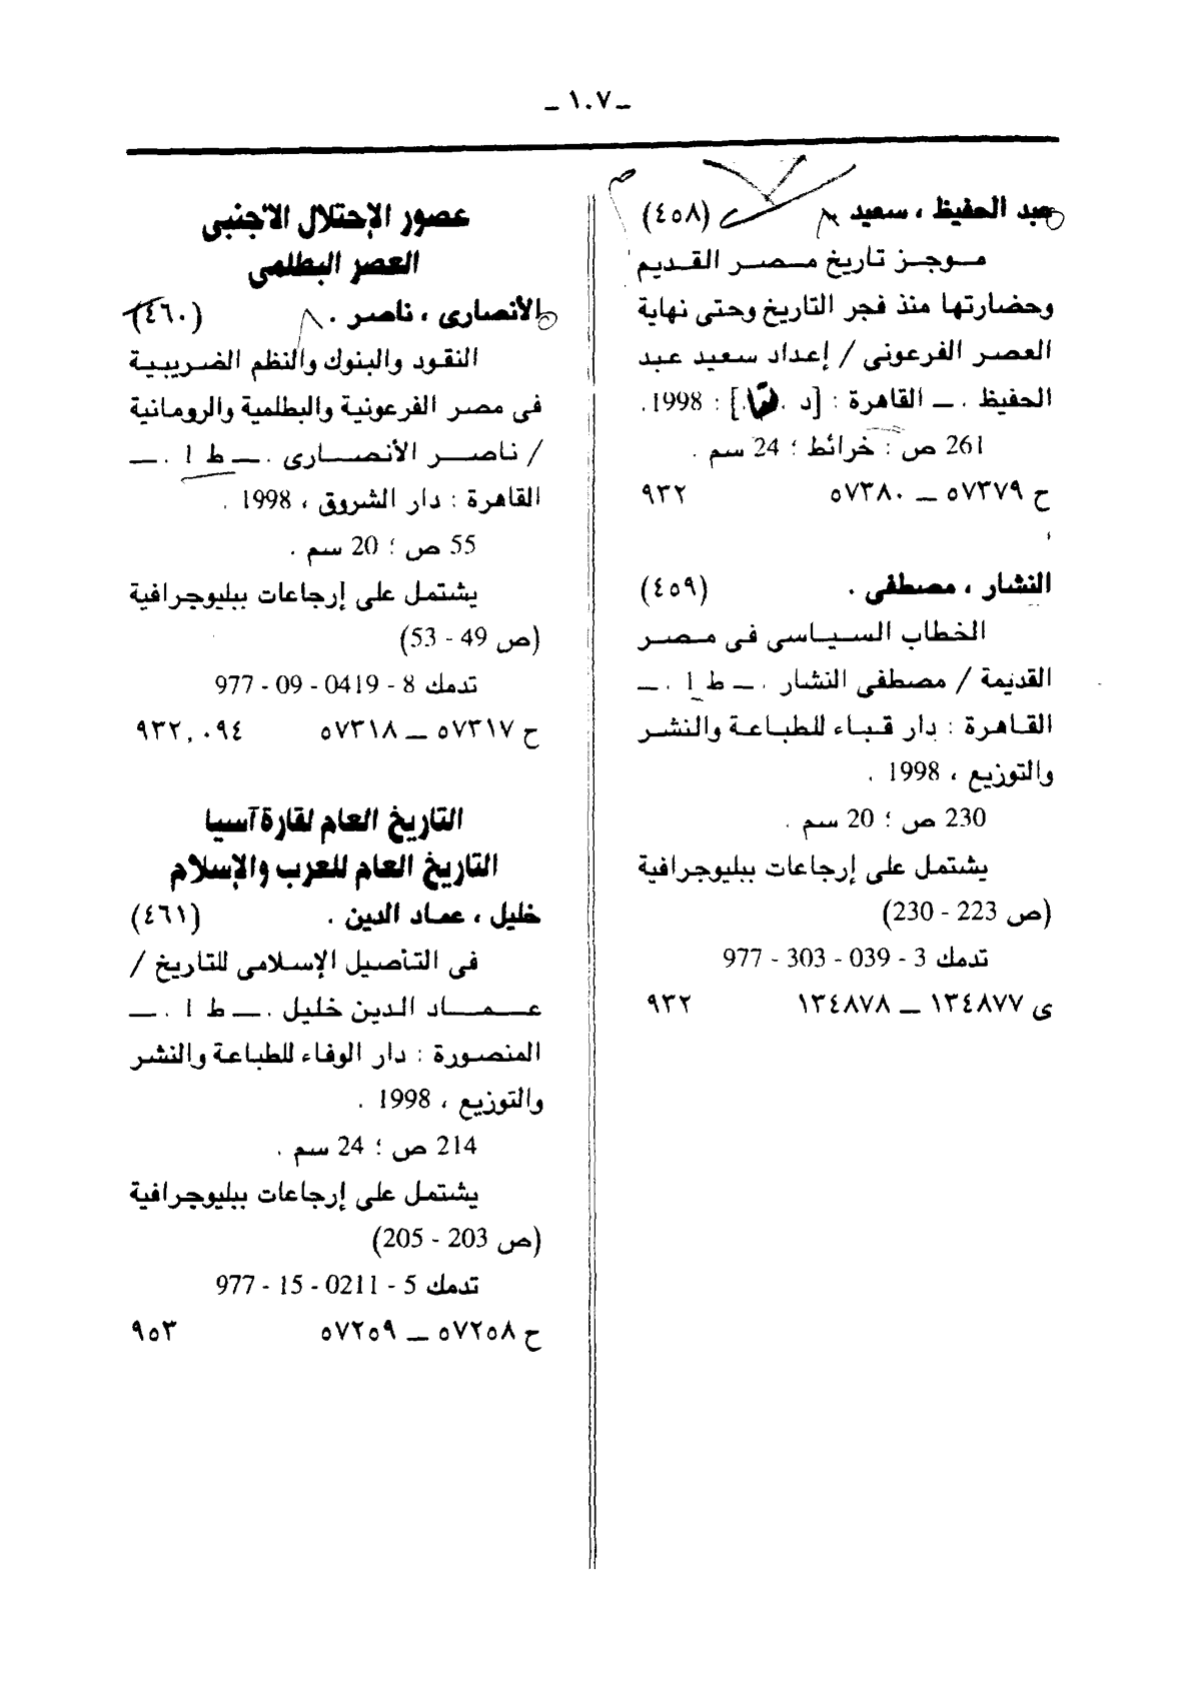 ـ ١٠٧ ـ
عبد الحفيظ ، سعيد (٤٥٨)
مـوجـز تاريخ مـصـر القـديم
وحضارتها منذ فجر التاريخ وحتى نهاية
العصر الفرعونى / إعداد سعيد عبد
الحفيظ . ــ القاهرة : [د . ] : 1998 .
261 ص : خرائط ؛ 24 سم .
ح ٥٧٣٧٩ ــ ٥٧٣٨٠ ٩٣٢
النشار ، مصطفى . (٤٥٩)
الخطاب السـيـاسى فى مـصـر
القديمة / مصطفى النشار . ــ ط ١ . ــ
القـاهـرة : دار قـبـاء للطبـاعـة والنشـر
والتوزيع ، 1998 .
230 ص ؛ 20 سم .
يشتمل على إرجاعات ببليوجرافية
(ص 223 - 230)
تدمك 3 - 039 - 303 - 977
ى ١٣٤٨٧٧ ــ ١٣٤٨٧٨ ٩٣٢
عصور الإحتلال الأجنبى
العصر البطلمى
الأنصارى ، ناصر . (٤٦٠)
النقود والبنوك والنظم الضريبية
فى مصر الفرعونية والبطلمية والرومانية
/ ناصـر الأنصـارى . ــ ط ١ . ــ
القاهرة : دار الشروق ، 1998 .
55 ص ؛ 20 سم .
يشتمل على إرجاعات ببليوجرافية
(ص 49 - 53)
تدمك 8 - 0419 - 09 - 977
ح ٥٧٣١٧ ــ ٥٧٣١٨ ٩٣٢,٠٩٤
التاريخ العام لقارة آسيا
التاريخ العام للعرب والإسلام
خليل ، عماد الدين . (٤٦١)
فى التأصيل الإسلامى للتاريخ /
عـمـاد الدين خليل . ــ ط ١ . ــ
المنصورة : دار الوفاء للطباعة والنشر
والتوزيع ، 1998 .
214 ص ؛ 24 سم .
يشتمل على إرجاعات ببليوجرافية
(ص 203 - 205)
تدمك 5 - 0211 - 15 - 977
ح ٥٧٢٥٨ ــ ٥٧٢٥٩ ٩٥٣